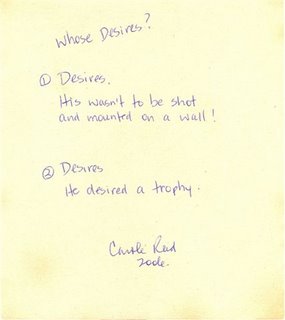 Whose Desires?
① Desires.
His wasn't to be shot
and mounted on a wall!
② Desires
He desired a trophy.
Reid